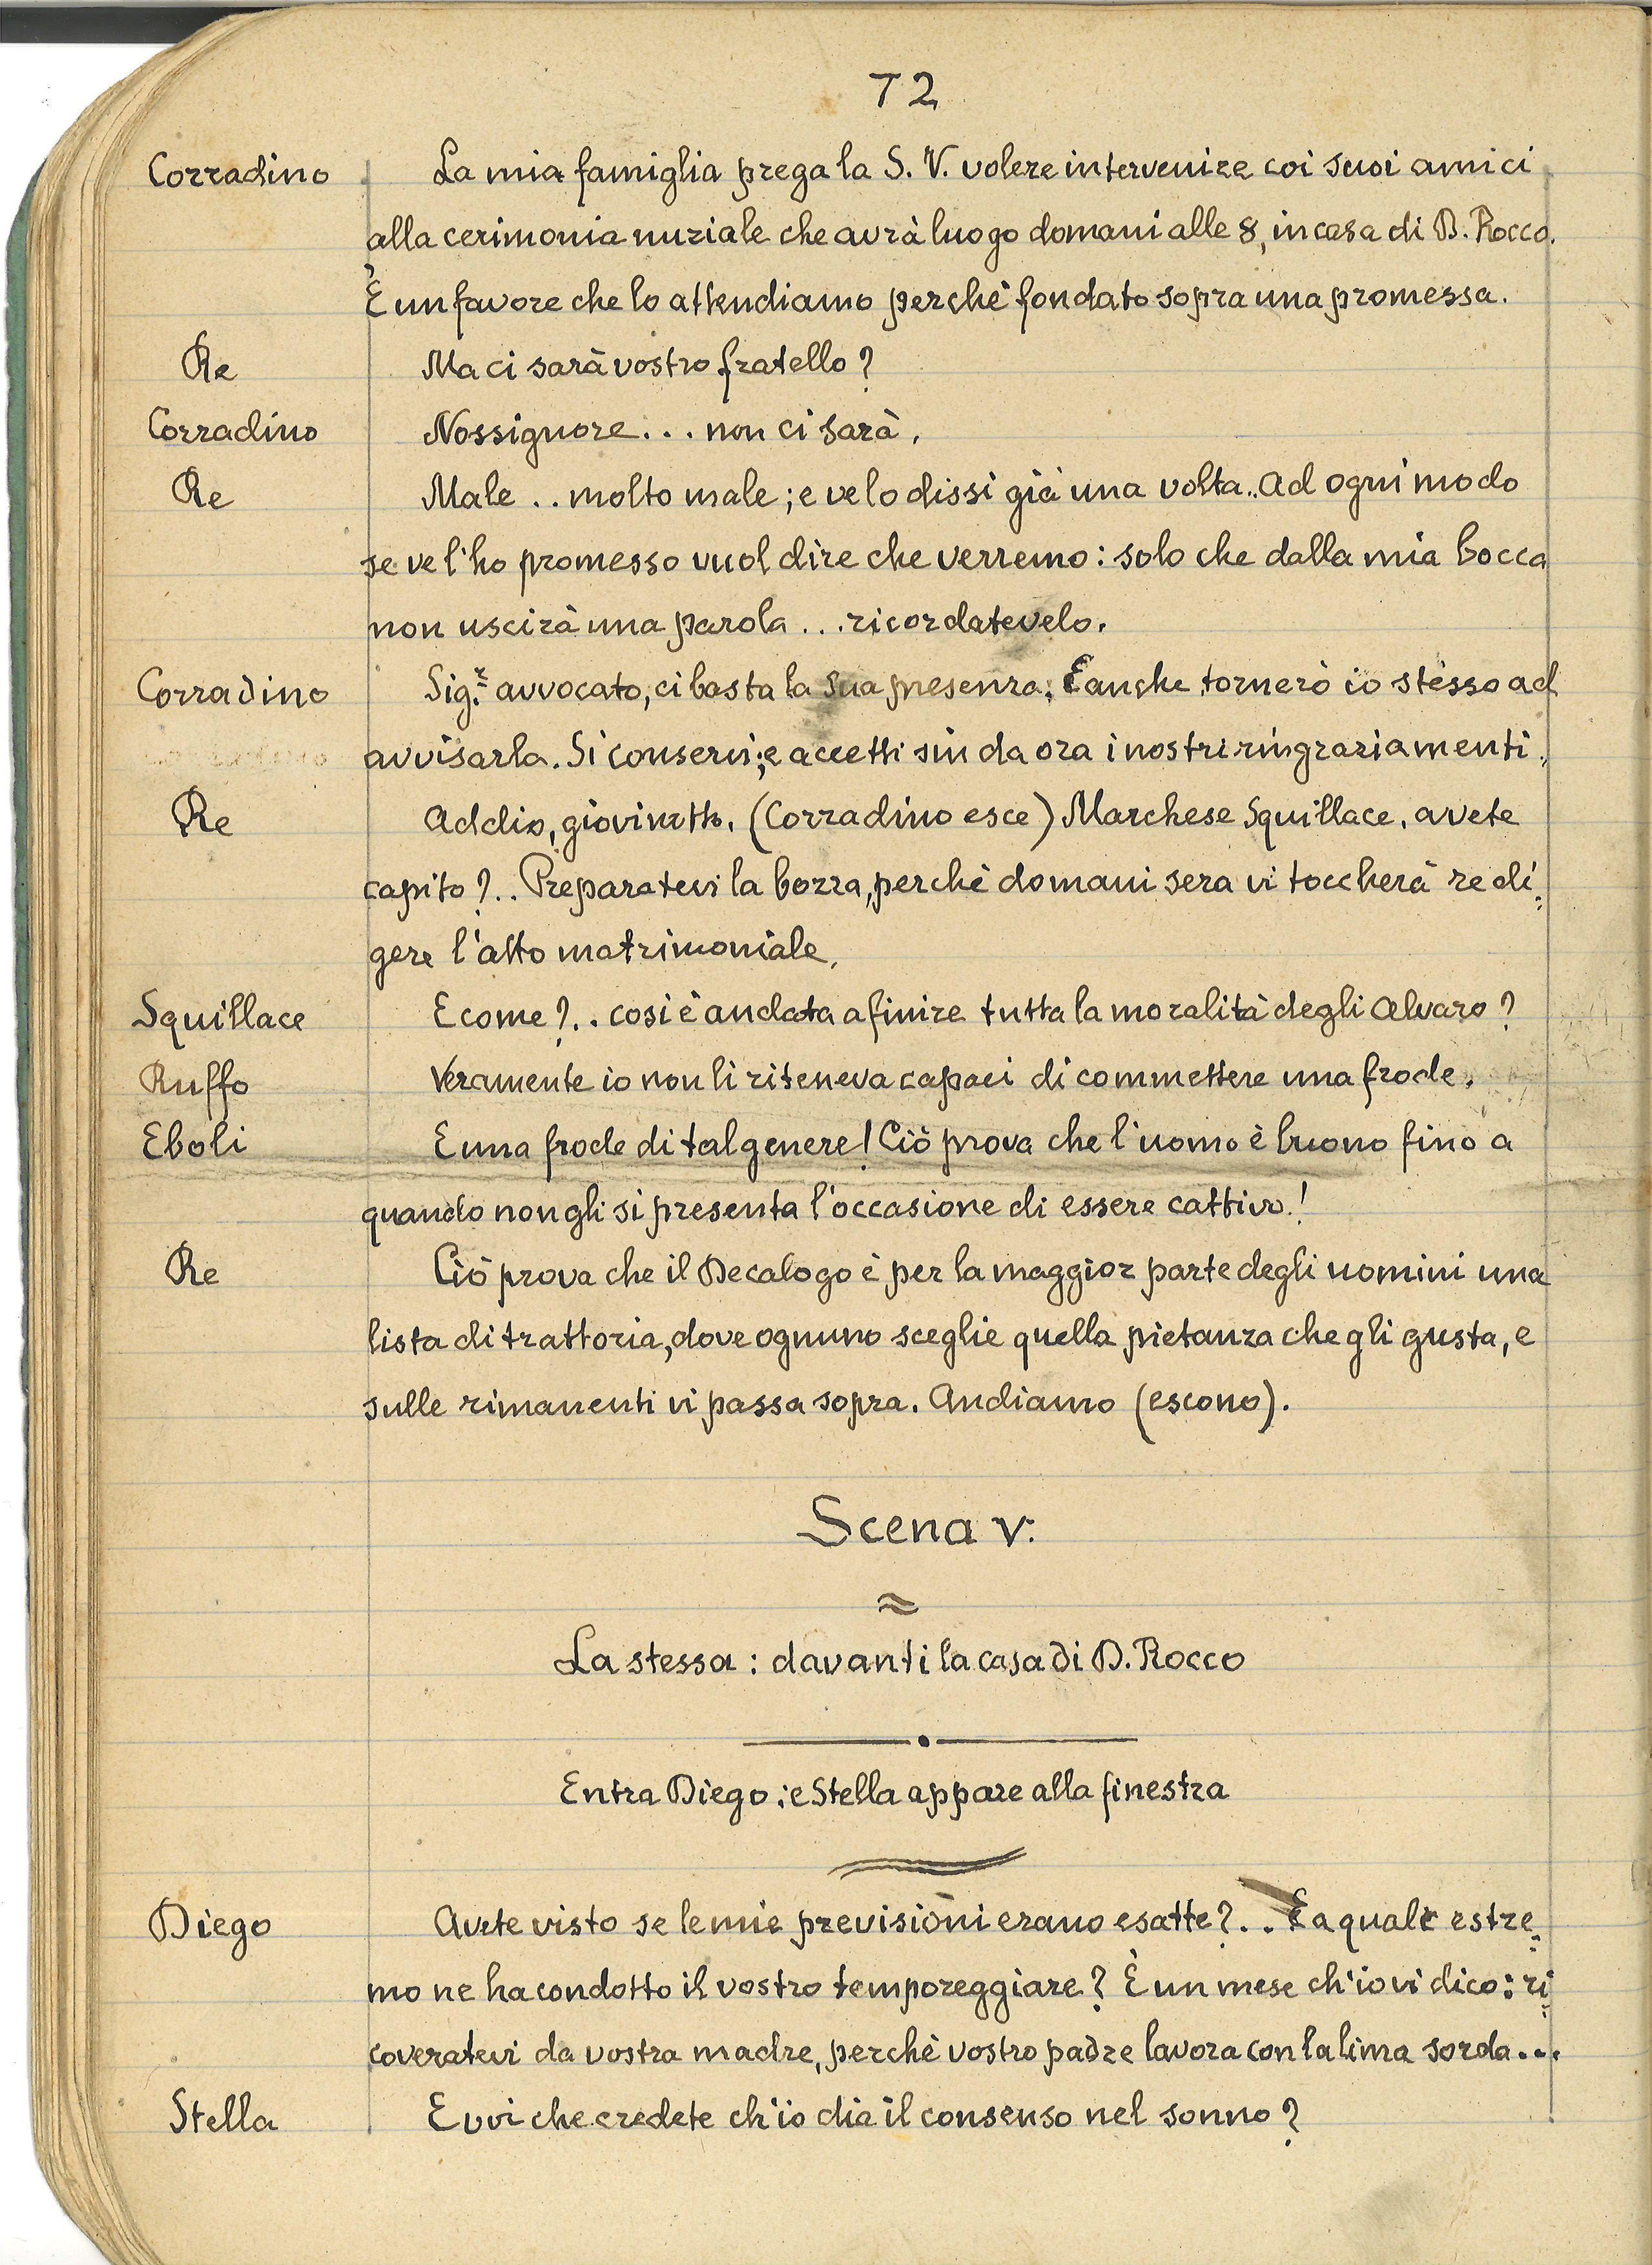 72
Corradino La mia famiglia prega la S. V. volere intervenire coi suoi amici
alla cerimonia nuziale che avrà luogo domani alle 8, in casa di D. Rocco.
È un favore che lo attendiamo perchè fondato sopra una promessa.
Re Ma ci sarà vostro fratello?
Corradino Nossignore... non ci sarà.
Re Male .. molto male; e ve lo dissi già una volta.. Ad ogni modo
se ve l'ho promesso vuol dire che verremo: solo che dalla mia bocca
non uscirà una parola ... ricordatevelo.
Corradino Sig.r avvocato, ci basta la sua presenza. E anche tornerò io stesso ad
avvisarla. Si conservi; e accetti sin da ora i nostri ringraziamenti.
Re Addio, giovinotto. (Corradino esce) Marchese Squillace, avete
capito?.. Preparatevi la bozza, perchè domani sera vi toccherà redi=
gere l'atto matrimoniale.
Squillace E come?.. così è andata a finire tutta la moralità degli Alvaro?
Ruffo Veramente io non li riteneva capaci di commettere una frode.
Eboli E una frode di tal genere! Ciò prova che l'uomo è buono fino a
quando non gli si presenta l'occasione di essere cattivo.!
Re Ciò prova che il Decalogo è per la maggior parte degli uomini una
lista di trattoria, dove ognuno sceglie quella pietanza che gli gusta, e
sulle rimanenti vi passa sopra. Andiamo (escono).
Scena V.
La stessa: davanti la casa di D. Rocco
Entra Diego; e Stella appare alla finestra
Diego Avete visto se le mie previsioni erano esatte?.. E a quale estre=
mo ne ha condotto il vostro temporeggiare? È un mese ch'io vi dico: ri=
coveratevi da vostra madre, perchè vostro padre lavora con la lima sorda...
Stella E voi che credete ch'io dia il consenso nel sonno?